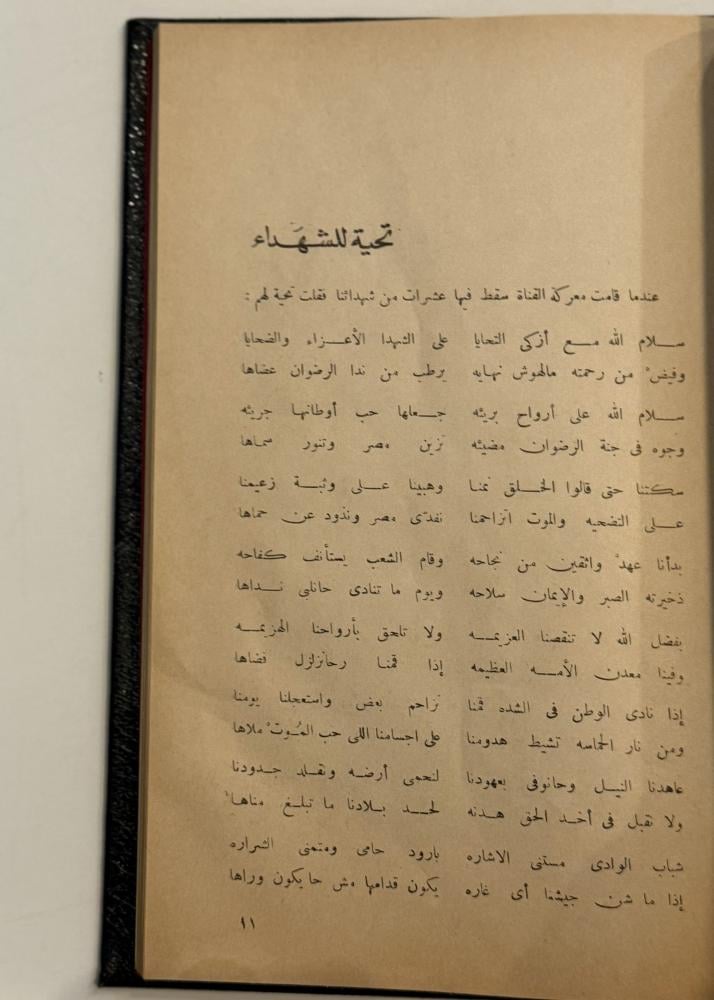 تحية للشهداء
عندما قامت معركة القناة سقط فيها عشرات من شهدائنا فقلت تحية لهم :
سلام الله مع أزكى التحايا على الشهدا الأعزاء والضحايا
وفيض من رحمته مالهوش نهايه يرطب من ندا الرضوان عضاها
سلام الله على أرواح بريئه جعلها حب أوطانها جريئه
وجوه فى جنة الرضوان مضيئه تزين مصر وتنور سماها
سكتنا حتى قالوا الخلق نمنا وهبينا على وثبة زعيمنا
على التضحيه والموت اتزاحمنا نفدى مصر ونذود عن حماها
بدأنا عهد واثقين من نجاحه وقام الشعب يستأنف كفاحه
ذخيرته الصبر والإيمان سلاحه ويوم ما تنادى حانلى نداها
بفضل الله لا تنقصنا العزيمه ولا تلحق بأرواحنا الهزيمه
وفينا معدن الأمه العظيمه إذا قمنا رحانزلزل فضاها
إذا نادى الوطن فى الشده قمنا نزاحم بعض واستعجلنا يومنا
ومن نار الحماسه تشيط هدومنا على اجسامنا اللى حب الموت ملاها
عاهدنا النيل وحانوفى بعهودنا لنحمى أرضه ونقلد جدودنا
ولا نقبل فى أخد الحق هدنه لحد بلادنا ما تبلغ مناها
شباب الوادى مستنى الاشاره بارود حامى ومتمنى الشراره
إذا ما شن جيشنا أى غاره يكون قدامها مش حايكون وراها
١١